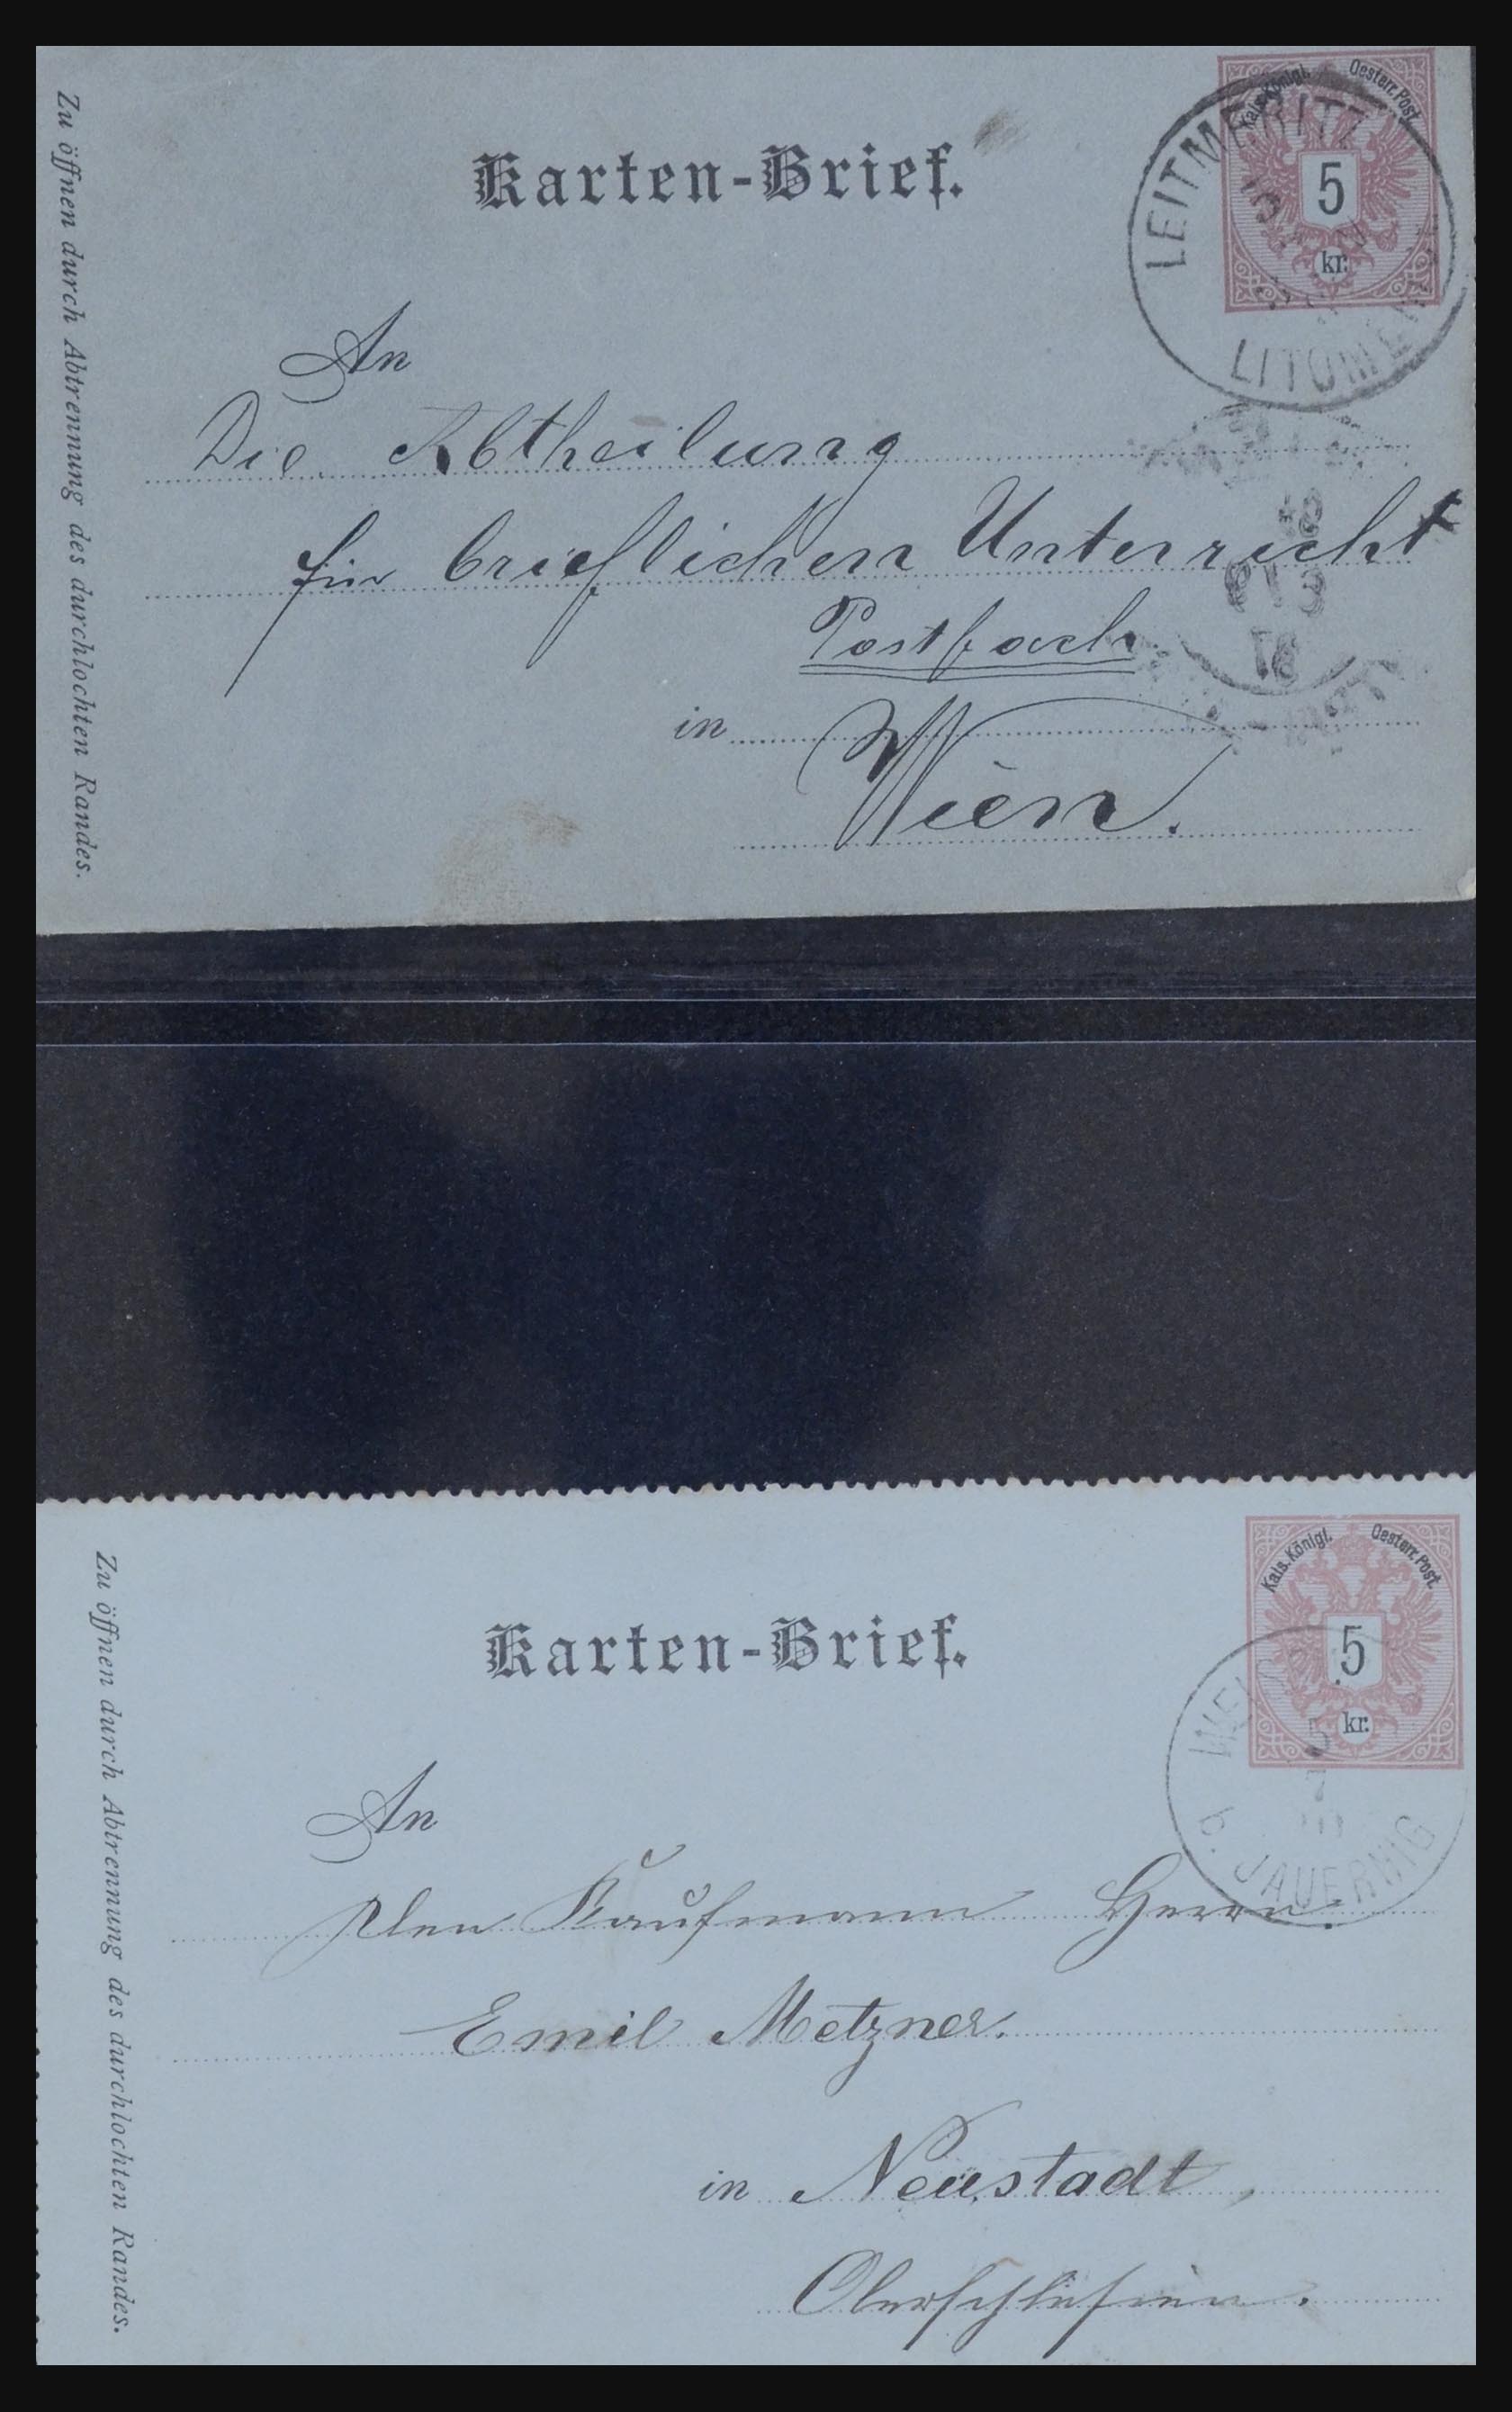 Kais. Königl. Oesterr. Post
5
kr.
LEITMERITZ
LITOMĚ
Karten-Brief.
Zu öffnen durch Abtrennung des durchlochten Randes.
An
Die Abtheilung
für brieflichen Unterricht
Postfach
in
Wien.
Kais. Königl. Oesterr. Post.
5
kr.
5
7
b. JAUERNIG
Karten-Brief.
Zu öffnen durch Abtrennung des durchlochten Randes.
An
den Kaufmann Herrn
Emil Metzner.
in Neustadt,
Oberschlesien.